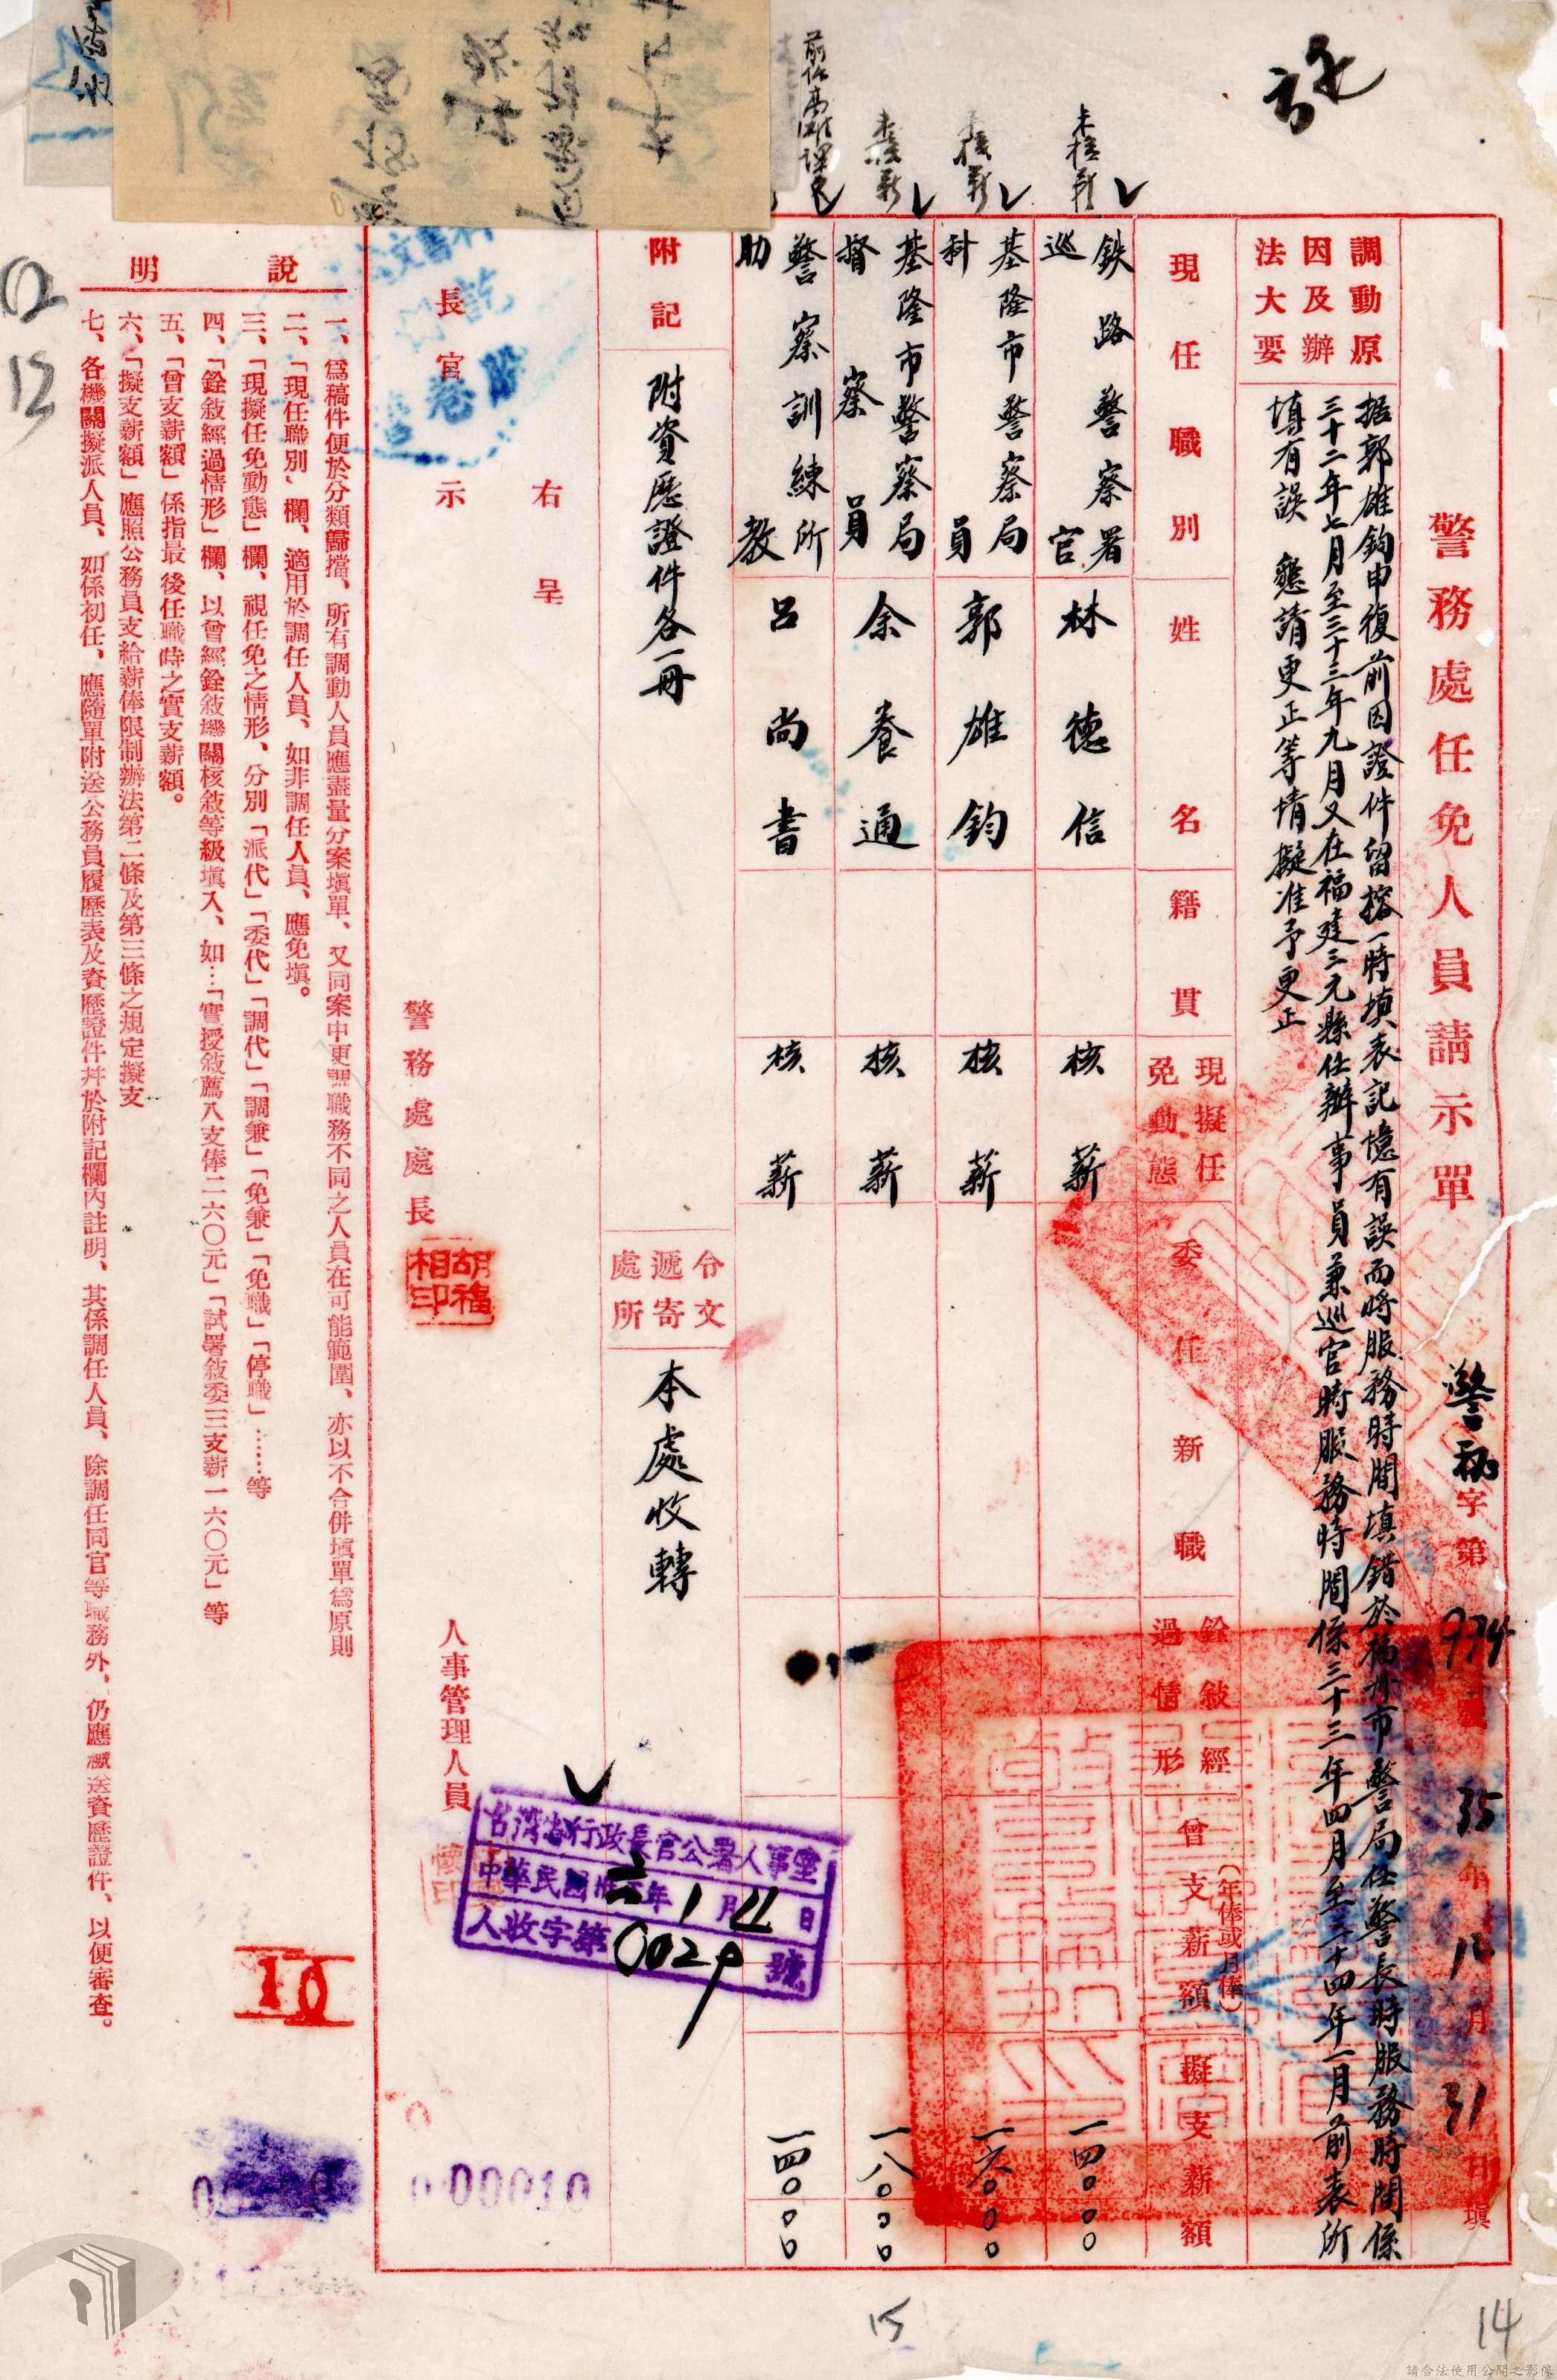 警務處任免人員請示單
警秘字第974號 35年12月31日填
調動原因及辦法大要
据郭雄鈞申復前因證件留榕一時填表記憶有誤而將服務時間填錯於福州市警局任警長時服務時間係
三十二年七月至三十三年九月又在福建三元縣任辦事員兼巡官時服務時間係三十三年四月至三十四年一月前表所
填有誤 懇請更正等情擬准予更正
現任職別
姓名
籍貫
現擬任免動態
委任新職
銓敍經過情形
曾支薪額(年俸或月俸)
擬支薪額
未核薪
鉄路警察署巡官 林德信 核薪 一四〇〇〇
未核薪
基隆市警察局科員 郭雄鈞 核薪 一六〇〇〇
未核薪
基隆市警察局督察員 余養通 核薪 一八〇〇〇
警察訓練所助教 呂尚書 核薪 一四〇〇〇
附記
附資歷證件各一冊
令文遞寄處所
本處收轉
右呈
長官示
警務處處長
胡福相印
人事管理人員
台灣省行政長官公署人事室
中華民國卅六年1月11日
人收字第0029號
00010
10
說明
一、爲稿件便於分類歸擋、所有調動人員應盡量分案塡單、又同案中更調職務不同之人員在可能範圍、亦以不合併塡單爲原則
二、「現任職別」欄、適用於調任人員、如非調任人員、應免塡。
三、「現擬任免動態」欄、視任免之情形、分別「派代」「委代」「調代」「調兼」「免兼」「免職」「停職」……等
四、「銓敍經過情形」欄、以曾經銓敍機關核敍等級塡入、如…「實授敍薦八支俸二六〇元」「試署敍委三支薪一六〇元」等
五、「曾支薪額」係指最後任職時之實支薪額。
六、「擬支薪額」應照公務員支給薪俸限制辦法第二條及第三條之規定擬支
七、各機關擬派人員、如係初任、應隨單附送公務員履歷表及資歷證件幷於附記欄內註明、其係調任人員、除調任同官等職務外、仍應檢送資歷證件、以便審查。
15
14
請合法使用公開之影像